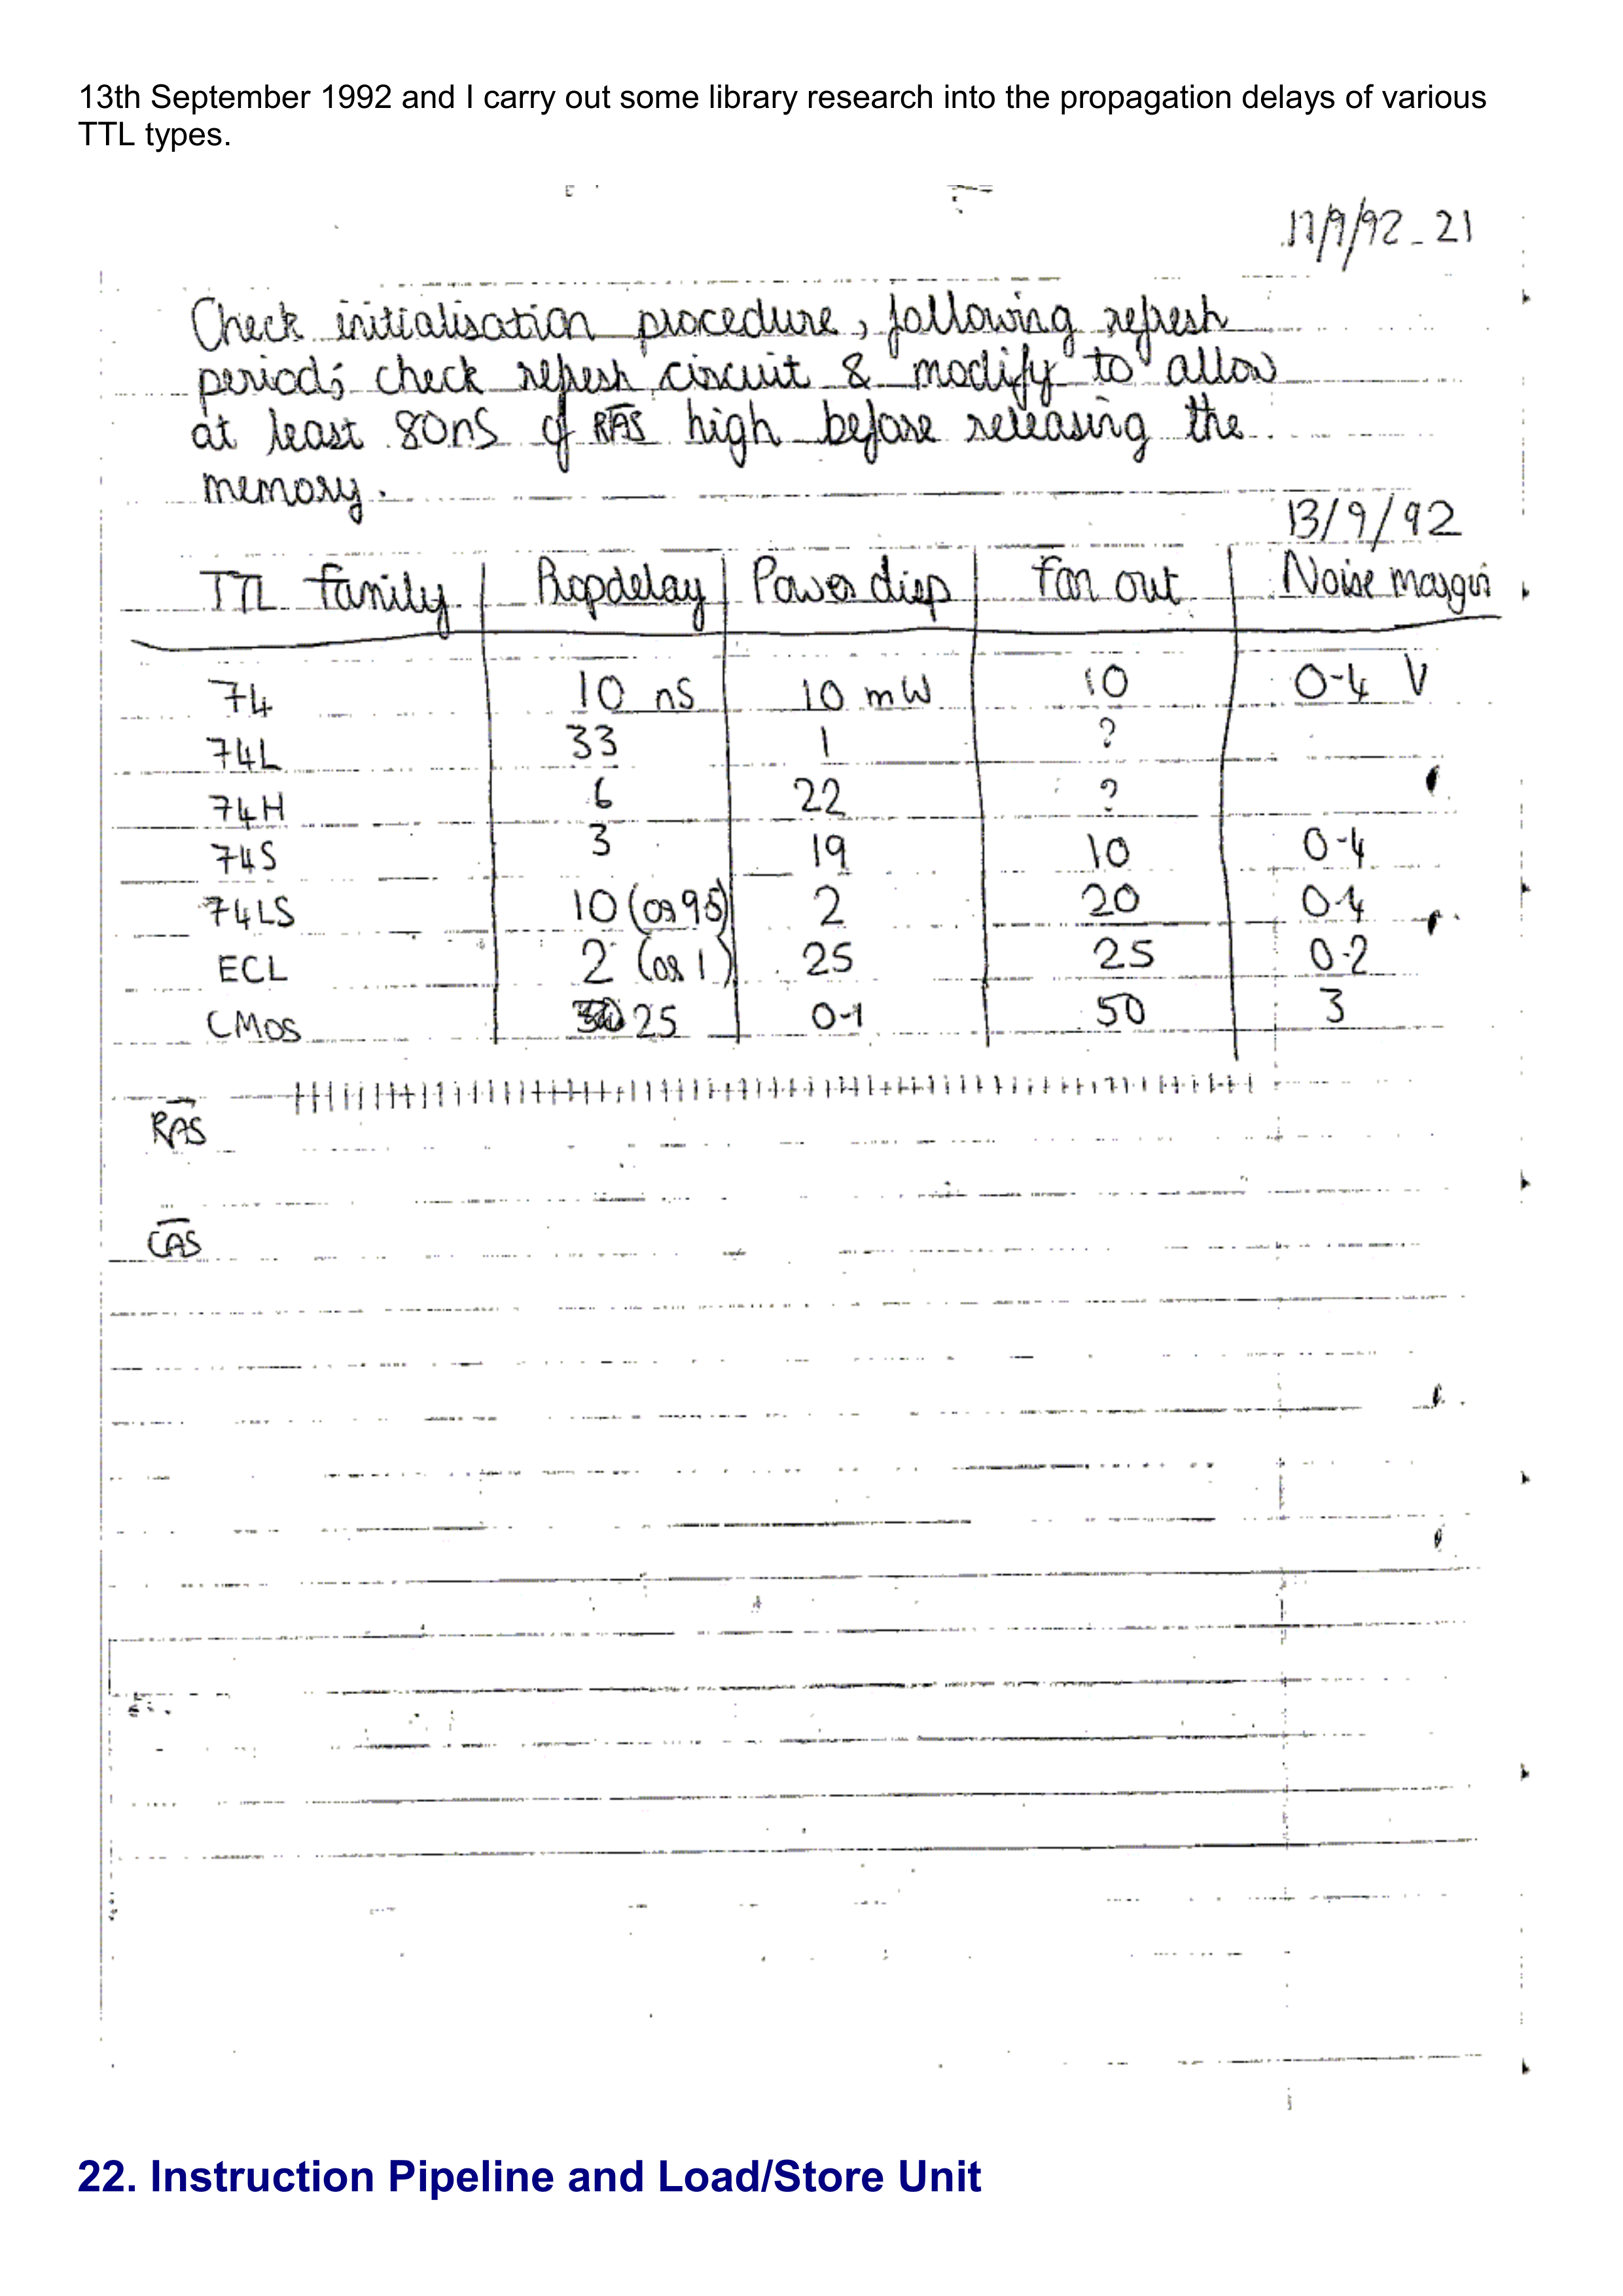 13th September 1992 and I carry out some library research into the propagation delays of various
TTL types.
/9/92 - 21
Check initialisation procedure, following refresh
period; check refresh circuit & modify to allow
at least 80nS of R̅A̅S̅ high before releasing the
memory.
13/9/92
TTL family Propdelay Power disp Fan out Noise margin
74 10 nS 10 mW 10 0.4 V
74L 33 1 ?
74H 6 22 ?
74S 3 19 10 0.4
74LS 10 (or 9.5) 2 20 0.4
ECL 2 (or 1) 25 25 0.2
CMOS 25 0.1 50 3
R̅A̅S̅
C̅A̅S̅
22. Instruction Pipeline and Load/Store Unit